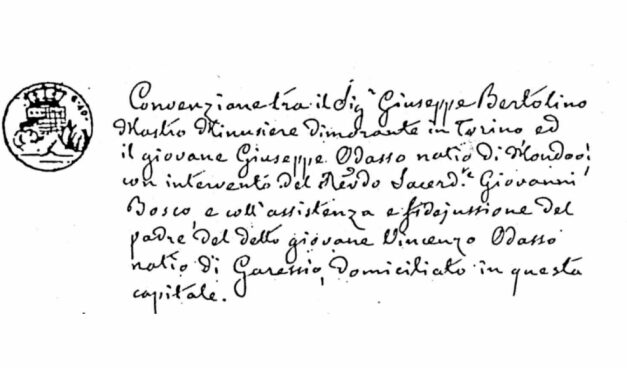 Convenzione tra il Sig.r Giuseppe Bertolino
Mastro Minusiere dimorante in Torino ed
il giovane Giuseppe Odasso natio di Mondovì
con intervento del Revdo Sacerd.te Giovanni
Bosco, e coll'assistenza e fidejussione del
padre del detto giovane Vincenzo Odasso
natio di Garessio, domiciliato in questa
capitale.